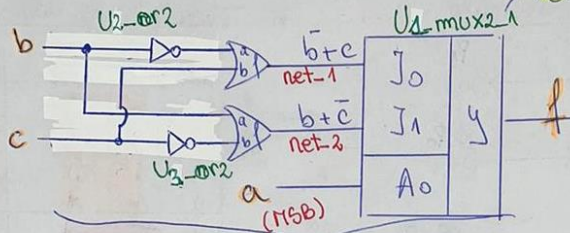 U2_or2
U1_mux2_1
b
a
b
b̄+c
net-1
J0
c
a
b
b+c̄
net-2
J1
y
f
U3_or2
a
(MSB)
A0